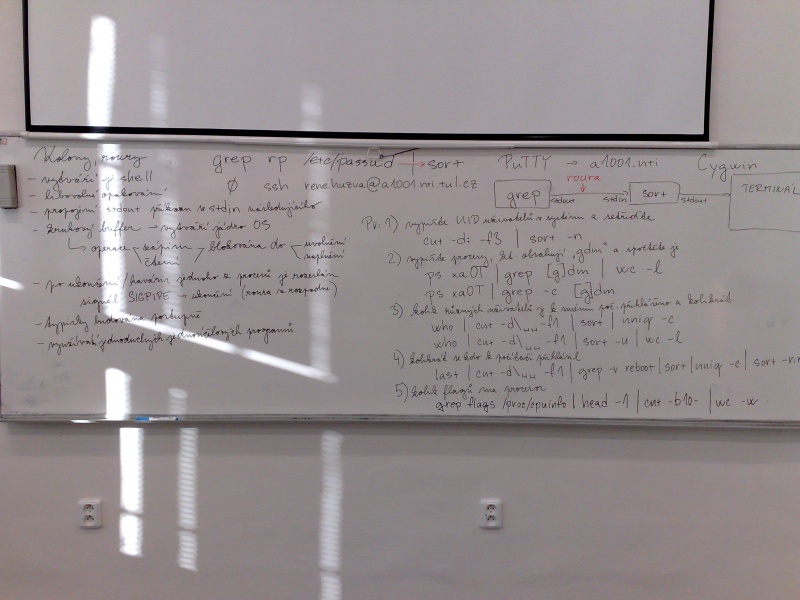 Kolony, roury
- vytváří je shell
- libovolné opakování
- propojení stdout příkazu se stdin následujícího
- kruhový buffer → vytváří jádro OS
→ operace zápisu čtení blokována do uvolnění naplnění
- po ukončení/havárii jednoho z procesů je rozeslán
signál SIGPIPE → ukončení (roura se rozpadne)
- typicky budována postupně
- využívat jednoduchých jednoúčelových programů
grep rp /etc/passwd → sort
Ø ssh rene.huzva@a1001.nti.tul.cz
PuTTY → a1001.nti
Cygwin
roura
grep stdout stdin sort stdout
TERMINÁL
Př. 1) vypište UID uživatelů v systému a setřiďte
cut -d: -f3 | sort -n
2) vypište procesy, kt. obsahují "gdm" a spočtěte je
ps xaOT | grep [g]dm | wc -l
ps xaOT | grep -c [g]dm
3) kolik různých uživatelů je k mému poč. přihlášeno a kolikrát
who | cut -d\␣␣ -f1 | sort | uniq -c
who | cut -d\␣␣ -f1 | sort -u | wc -l
4) kolikrát se kdo k počítači přihlásil
last | cut -d\␣␣ -f1 | grep -v reboot | sort | uniq -c | sort -nr
5) kolik flagů má procesor
grep flags /proc/cpuinfo | head -1 | cut -b10- | wc -w